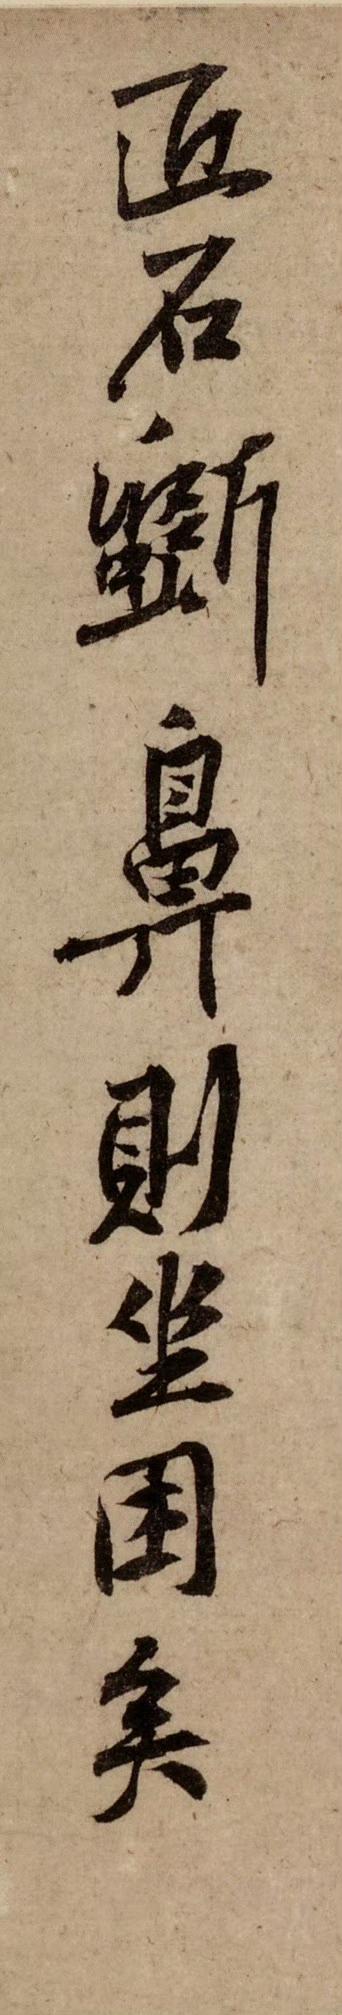 匠石斵鼻則坐困矣